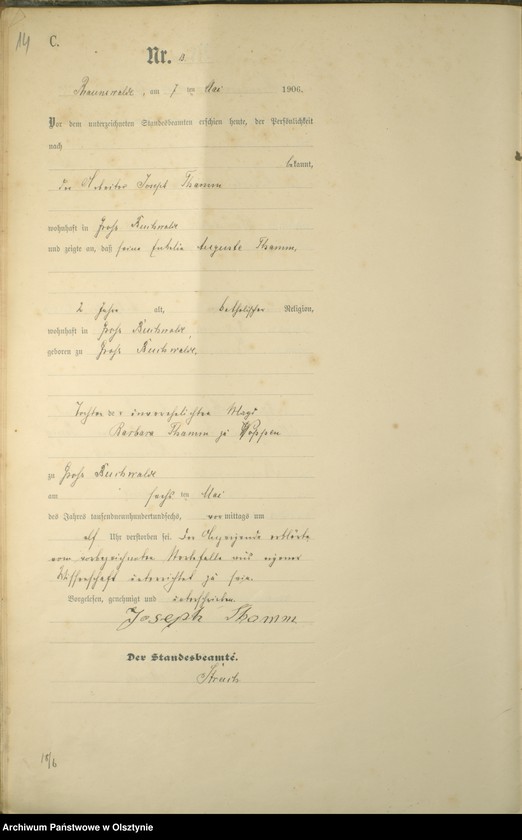 14
C.
Nr.
am 7 ten Mai 1906.
Vor dem unterzeichneten Standesbeamten erschien heute, der Persönlichkeit
nach
bekannt,
der Arbeiter Joseph Thamm
wohnhaft in Groß Buchwalde
und zeigte an, daß seine Enkelin Auguste Thamm,
2 Jahre alt, katholischer Religion,
wohnhaft in Groß Buchwalde,
geboren zu Groß Buchwalde,
Tochter der unverehelichten Magd
Barbara Thamm zu
zu Groß Buchwalde
am sechs ten Mai
des Jahres tausendneunhundertundsechs, vor mittags um
elf Uhr verstorben sei. Der Anzeigende erklärte
vom vorbezeichneten Sterbefalle aus eigener
Wissenschaft unterrichtet zu sein.
Vorgelesen, genehmigt und unterschrieben.
Joseph Thamm
Der Standesbeamte.
Archiwum Państwowe w Olsztynie